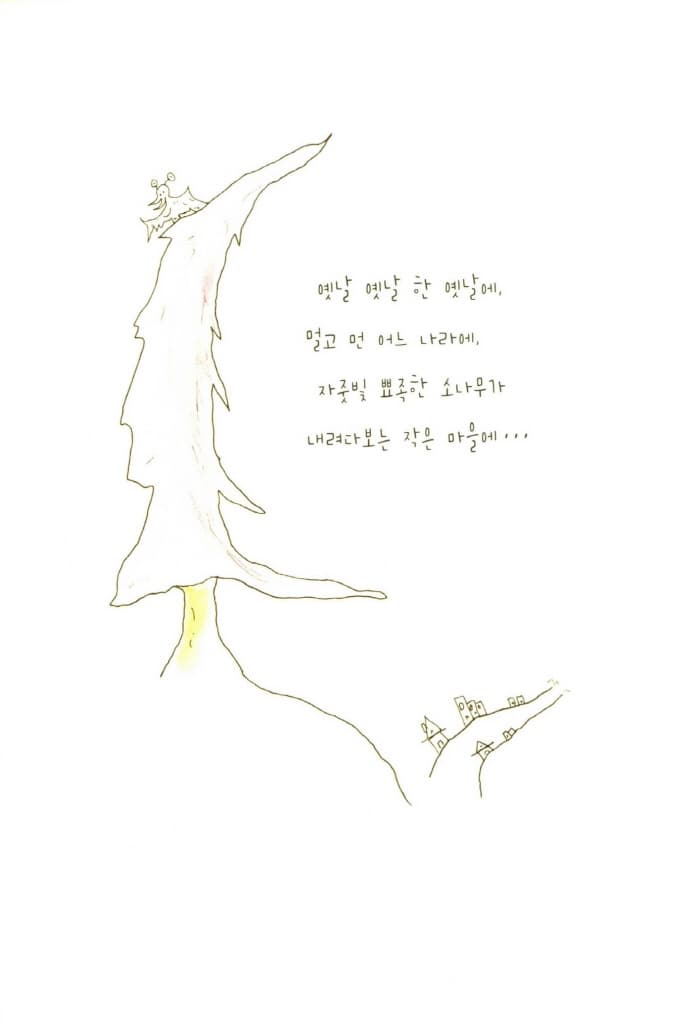 옛날 옛날 한 옛날에,
멀고 먼 어느 나라에,
자줏빛 뾰족한 소나무가
내려다보는 작은 마을에...